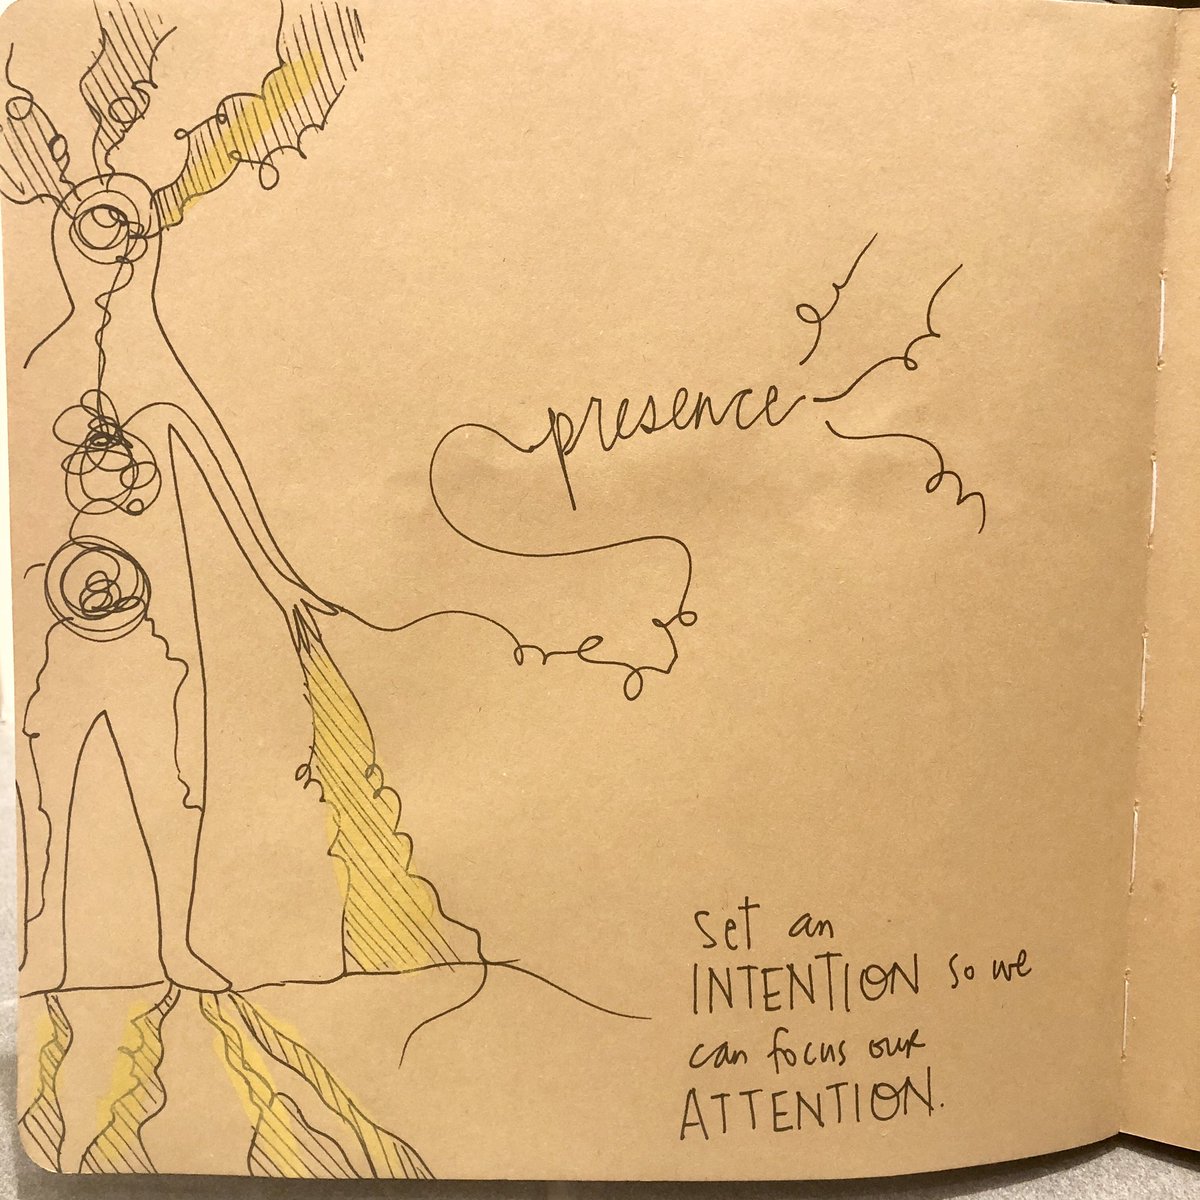 presence
set an
INTENTION so we
can focus our
ATTENTION.